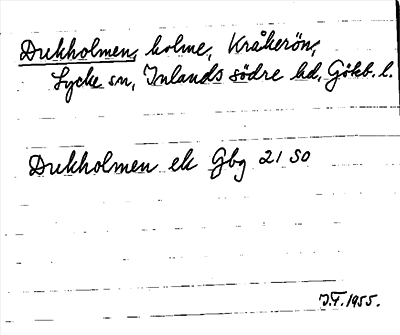 Dukholmen, holme, Kråkerön,
Lycke sn, Inlands södre hd, Gökb. l.
Dukholmen ek Gbg 21 SO
J.F. 1955.